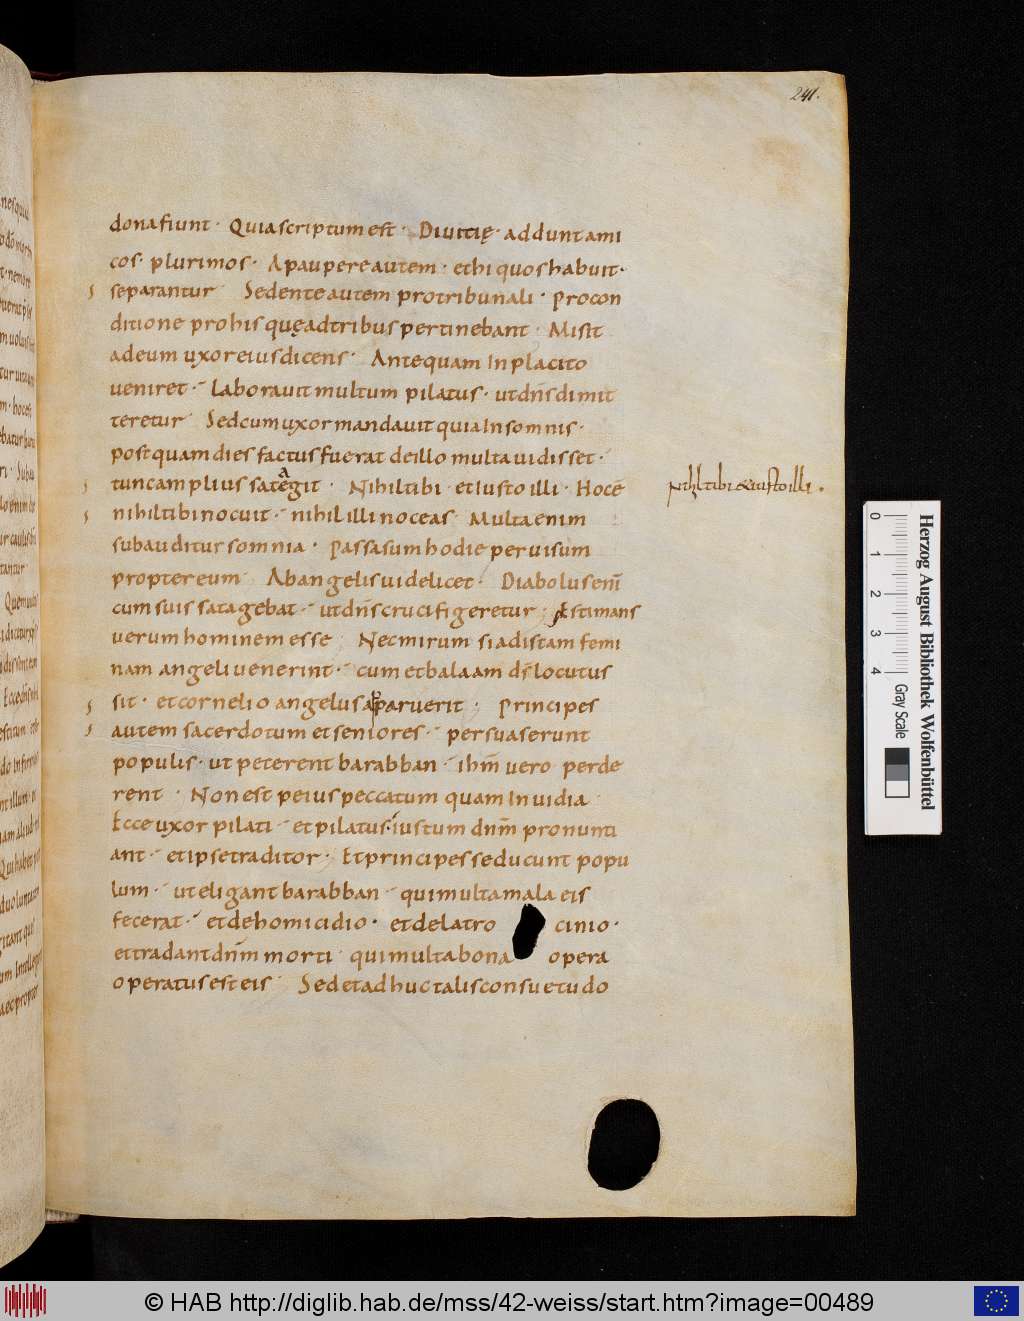 241.
dona fiunt · Quia scriptum est · Diuitię · addunt ami
cos · plurimos · A paupere autem · et hi quos habuit ·
separantur Sedente autem pro tribunali · Procon
ditione pro his quę ad tribus pertinebant · Misit
ad eum uxor eius dicens · Antequam in placito
ueniret · Laborauit multum pilatus · ut dñs dimit
teretur Sed cum uxor mandauit quia in somnis ·
postquam dies factus fuerat de illo multa uidisset ·
tunc amplius sategit · Nihil tibi · et iusto illi · Hoc ē
nihil tibi et iusto illi ·
nihil tibi nocuit · nihil illi noceas · Multa enim
subauditur somnia · Passa sum hodie per uisum
propter eum Ab angelis uidelicet · Diabolus enī
cum suis satagebat · ut dñs crucifigeretur · Estimans
uerum hominem esse Nec mirum si ad istam femi
nam angeli uenerint · cum et balaam dš locutus
sit · et cornelio angelus apparuerit · Principes
autem sacerdotum et seniores · persuaserunt
populis · ut peterent barabban · ihm̄ uero perde
rent · Non est peius peccatum quam inuidia
Ecce uxor pilati · et pilatus · iustum dnm̄ pronunti
ant · et ipse traditor · Et principes seducunt popu
lum · ut eligant barabban · qui multa mala eis
fecerat · et de homicidio · et de latro cinio ·
et tradant dnm̄ morti · qui multa bona opera
operatus est eis Sed et adhuc talis consuetudo
Herzog August Bibliothek Wolfenbüttel
0 1 2 3 4 Gray Scale
© HAB http://diglib.hab.de/mss/42-weiss/start.htm?image=00489